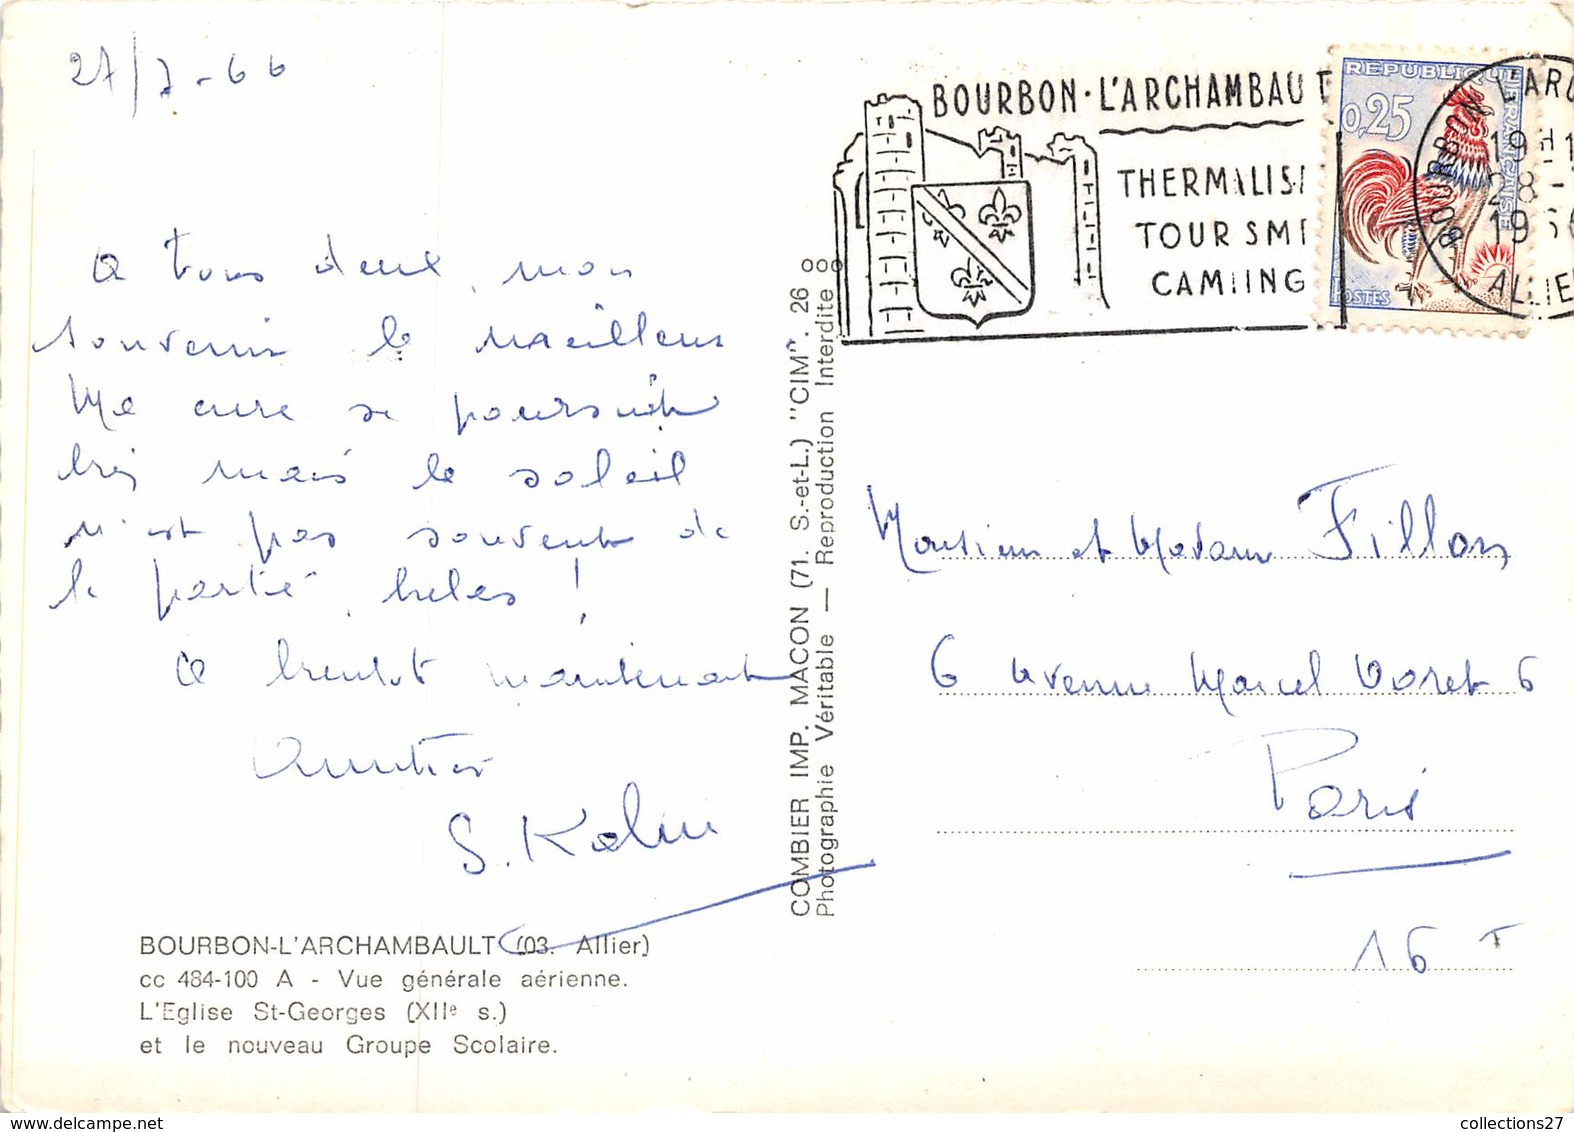 27/7-66
A tous deux, mon
souvenir le meilleur
Ma cure se poursuit
très mais le soleil
n'est pas souvent de
la partie, hélas !
A bientôt maintenant
Amitiés
S. Kahn
BOURBON-L'ARCHAMBAULT (03. Allier)
cc 484-100 A - Vue générale aérienne.
L'Eglise St-Georges (XIIe s.)
et le nouveau Groupe Scolaire.
COMBIER IMP. MACON (71. S.-et-L.) "CIM". 26 ooo
Photographie Véritable — Reproduction Interdite
BOURBON-L'ARCHAMBAU
THERMALIS
TOURISM
CAMPING
REPUBLIQUE FRANÇAISE
0,25
POSTES
BOURBON L'ARC
19H1
28-
1966
ALLIE
Monsieur et Madame Fillon
6 Avenue Marcel Doret 6
Paris
16
collections27